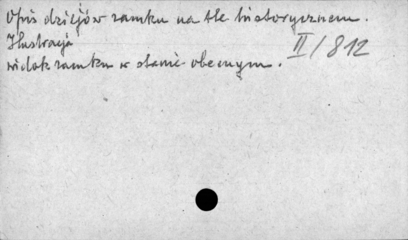 Opis dziejów zamku na tle historycznem.
Ilustracja
widok zamku w stanie obecnym.
II/812